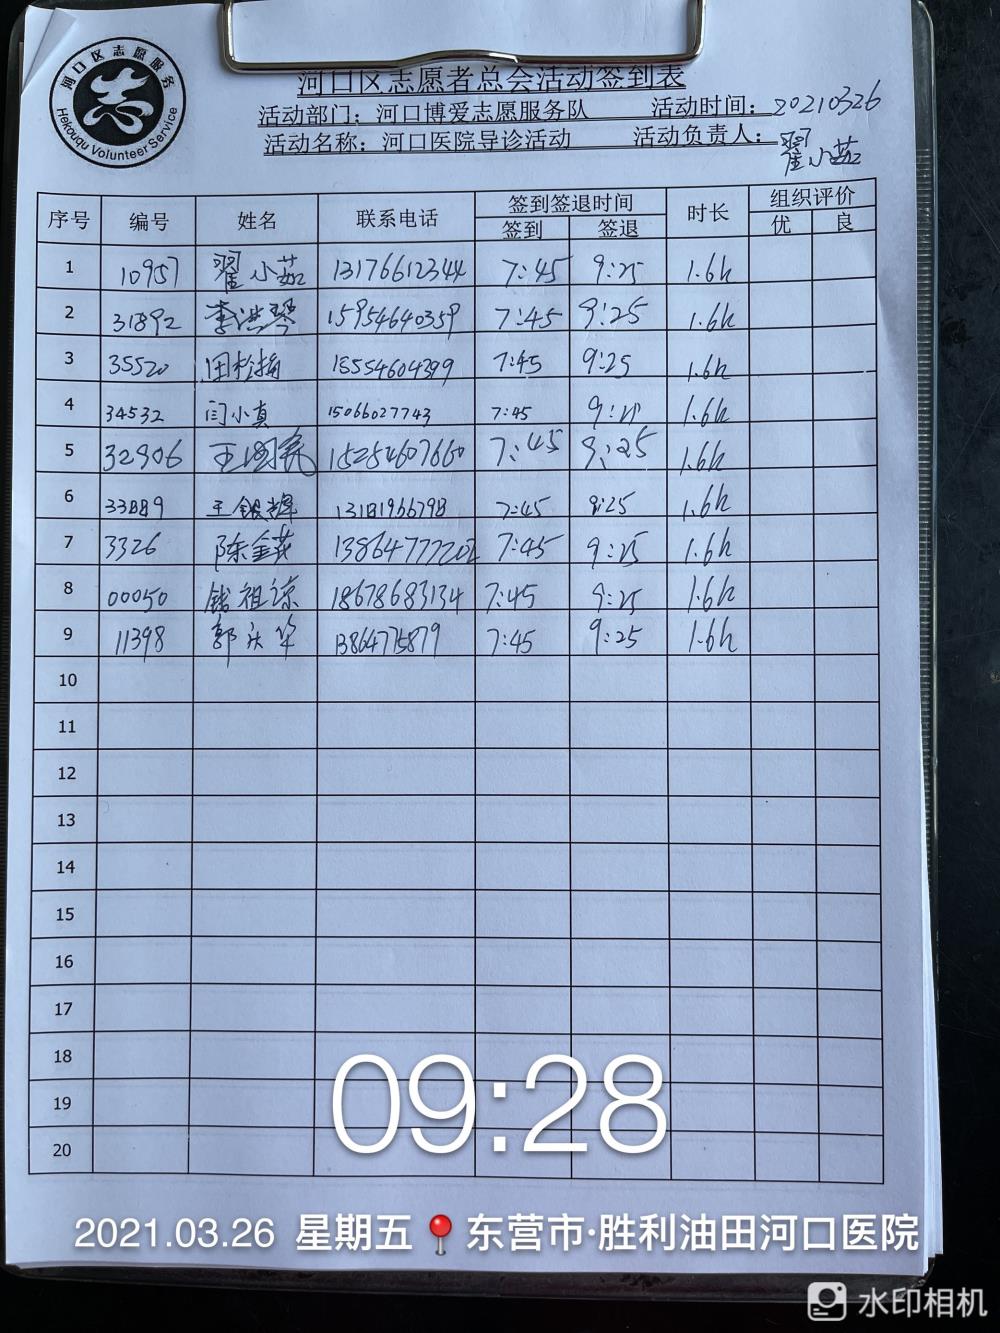 河口区志愿服务
志
Hekouqu Volunteer Service
河口区志愿者总会活动签到表
活动部门：河口博爱志愿服务队 活动时间：20210326
活动名称：河口医院导诊活动 活动负责人：翟小茹
序号 编号 姓名 联系电话 签到签退时间 时长 组织评价
签到 签退 优 良
1 10957 翟小茹 13176612344 7:45 9:25 1.6h
2 31892 李洪琴 15954640359 7:45 9:25 1.6h
3 35520 田松梅 15554604399 7:45 9:25 1.6h
4 34532 闫小真 15066027743 7:45 9:25 1.6h
5 32906 王国亮 15254607660 7:45 9:25 1.6h
6 33889 王银辉 13181966798 7:45 9:25 1.6h
7 3326 陈金英 13864777202 7:45 9:25 1.6h
8 00050 钱祖谅 18678683134 7:45 9:25 1.6h
9 11398 郭庆华 13864775879 7:45 9:25 1.6h
10
11
12
13
14
15
16
17
18
19
20
09:28
2021.03.26 星期五 东营市·胜利油田河口医院
水印相机